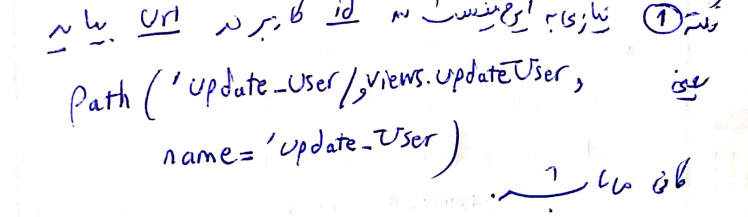 نکته ① نیازی به این نیست که id کاربر در url بیاید
یعنی path('update_user/, views.updateUser,
name='update_User)
کافی می باشد.